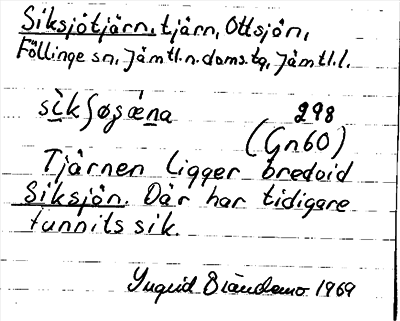 Siksjötjärn, tjärn, Ottsjön,
Föllinge sn, Jämtl.n.doms.tg, Jämtl.l.
298
(Gn60)
Tjärnen ligger bredvid
Siksjön. Där har tidigare
funnits sik.
Yngvid 1969